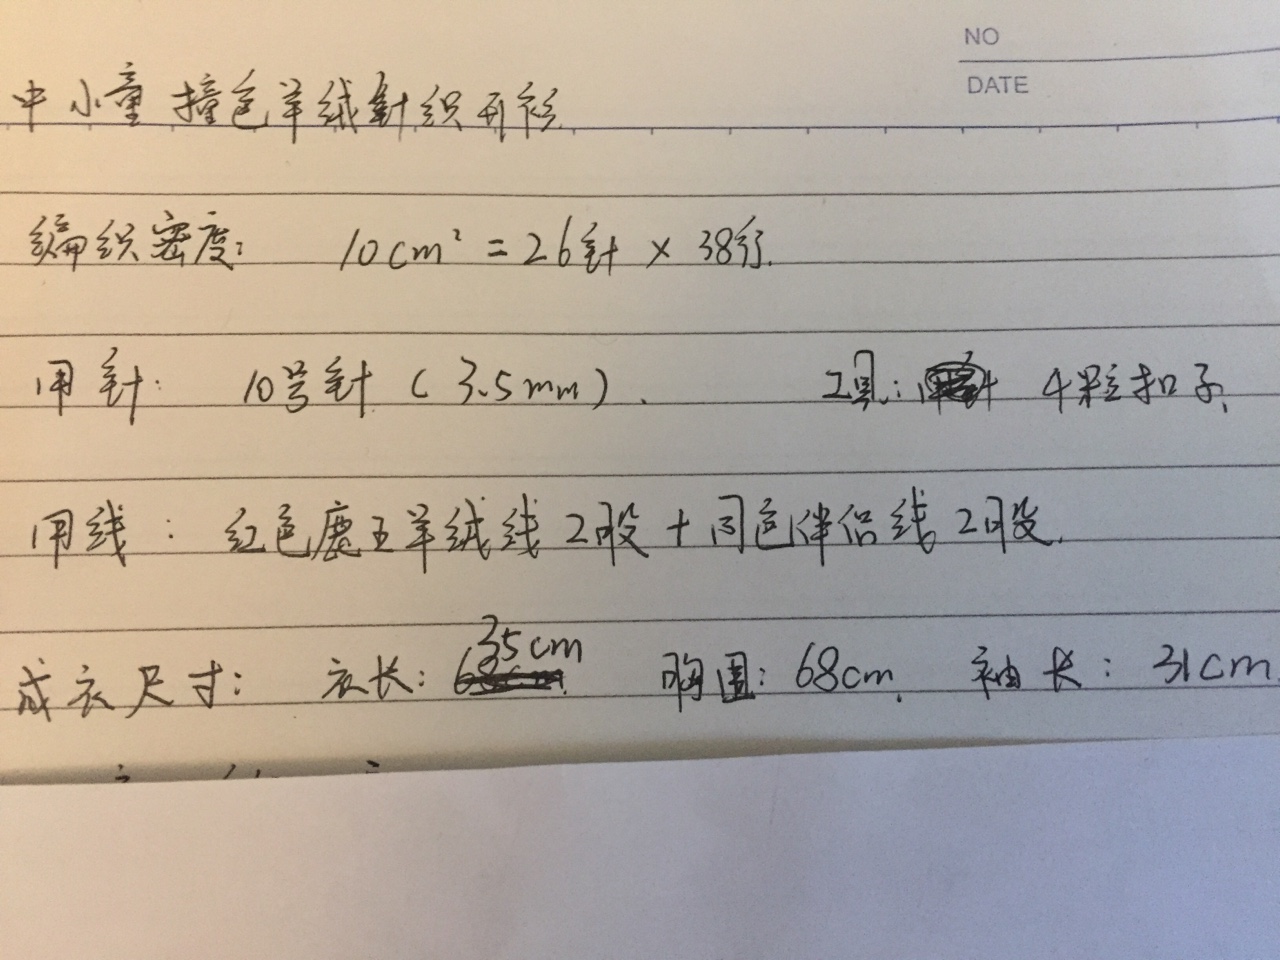 NO
DATE
中小童撞色羊绒针织开衫
编织密度: 10cm² = 26针 × 38行.
用针: 10号针 ( 3.5mm ) . 工具: 4颗扣子.
用线: 红色鹿王羊绒线2股 + 同色伴侣线2股.
成衣尺寸: 衣长: 35cm 胸围: 68cm. 袖长: 31cm.